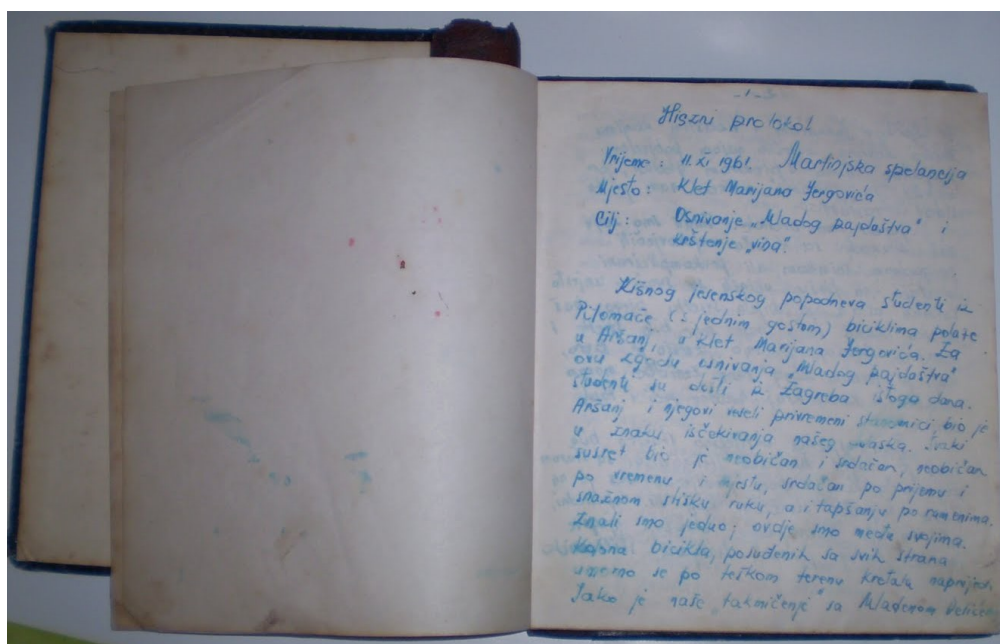 -1-
Hižni protokol
Vrijeme: 11. XI 1961. Martinjska spelancija
Mjesto: Klet Marijana Jergovića
Cilj: Osnivanje „Mladog pajdaštva" i
krštenje „vina".
Kišnog jesenskog popodneva studenti iz
Pitomače (s jednim gostom) biciklima polaze
u Aršanj, u klet Marijana Jergovića. Za
ovu zgodu osnivanja „Mladog pajdaštva"
studenti su došli iz Zagreba istoga dana.
Aršanj i njegovi veseli privremeni stanovnici, bio je
u znaku iščekivanja našeg dolaska. Svaki
susret bio je neobičan i srdačan, neobičan
po vremenu, i mjestu, srdačan po prijemu i
snažnom stisku ruku, a i tapšanju po ramenima.
Znali smo jedno; ovdje smo među svojima.
Kolona bicikla, posuđenih sa svih strana
uporno se po teškom terenu kretala naprijed.
Iako je naše „takmičenje" sa Mladenom